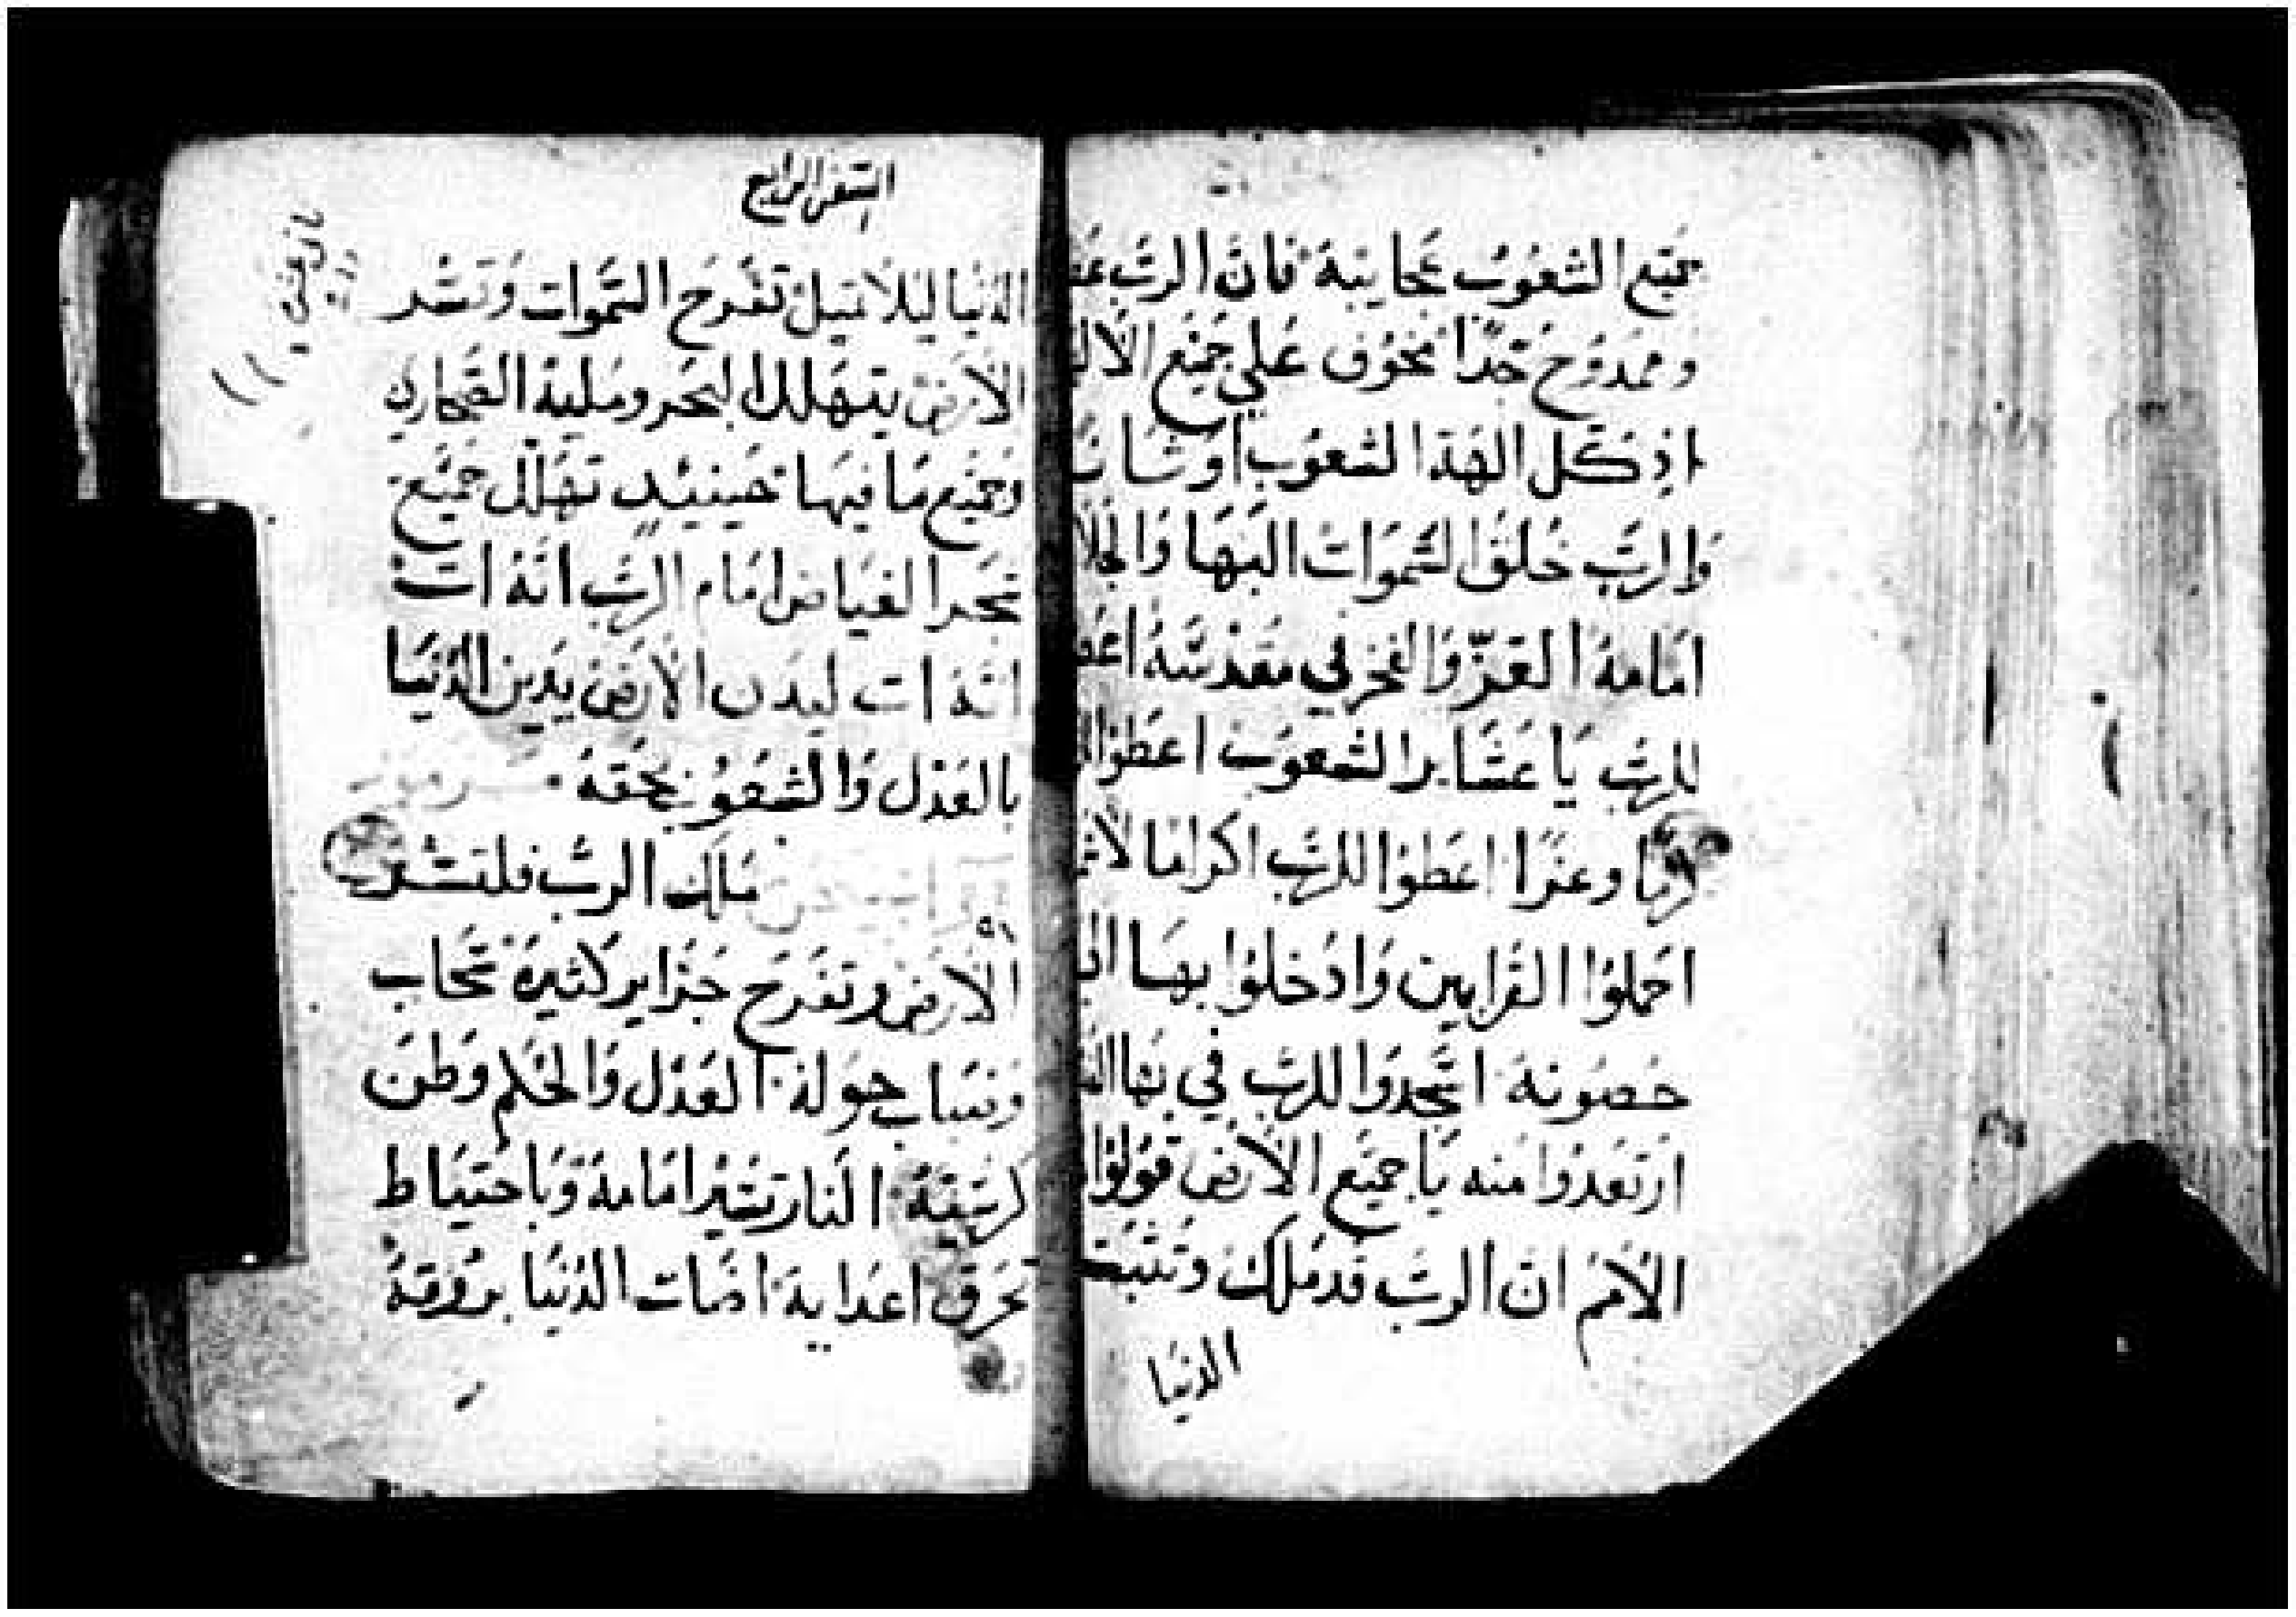 جميع الشعوب عجايبة فان الرب
وممدوح جدا مخوف علي جميع
اذ كل الهة الشعوب اوثان
والرب خلق السموات البها والجلا
امامة العز والفخر في مقدسه
للرب يا عشاير الشعوب اعطوا
وعزا اعطوا للرب اكراما لاسم
احملوا القرابين وادخلوا بها
حصونة اسجدوا للرب في بها
ارتعدوا منه يا جميع الارض قولوا
الامم ان الرب قد ملك وتثبت
الدنيا
السفر الرابع
الدنيا ليلا تميل تفرح السموات وتسر
الارض يتهلل البحر ومليه الصحاري
وجميع ما فيها حينيد تهلل جميع
شجر الغياض امام الرب انه ات
انه ات ليدن الارض يدين الدنيا
بالعدل والشعوب بحقه
ملك الرب فلتسر
الارض وتفرح جزاير كثيره سحاب
وضباب حولة العدل والحكم وطن
كرسية النار تسير امامة وباحتياط
تحرق اعداية اضات الدنيا بروقة